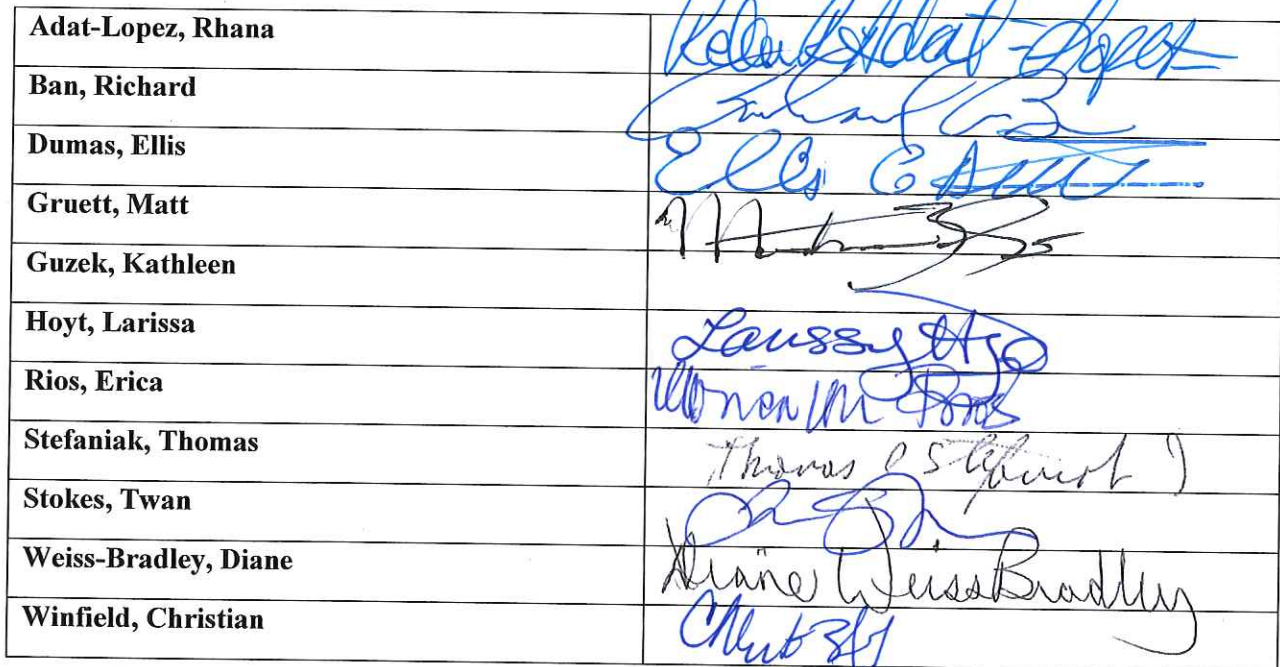 Adat-Lopez, Rhana Adat-Lopez
Ban, Richard
Dumas, Ellis Ellis E
Gruett, Matt
Guzek, Kathleen
Hoyt, Larissa
Rios, Erica
Stefaniak, Thomas Thomas
Stokes, Twan
Weiss-Bradley, Diane Diane Weiss Bradley
Winfield, Christian